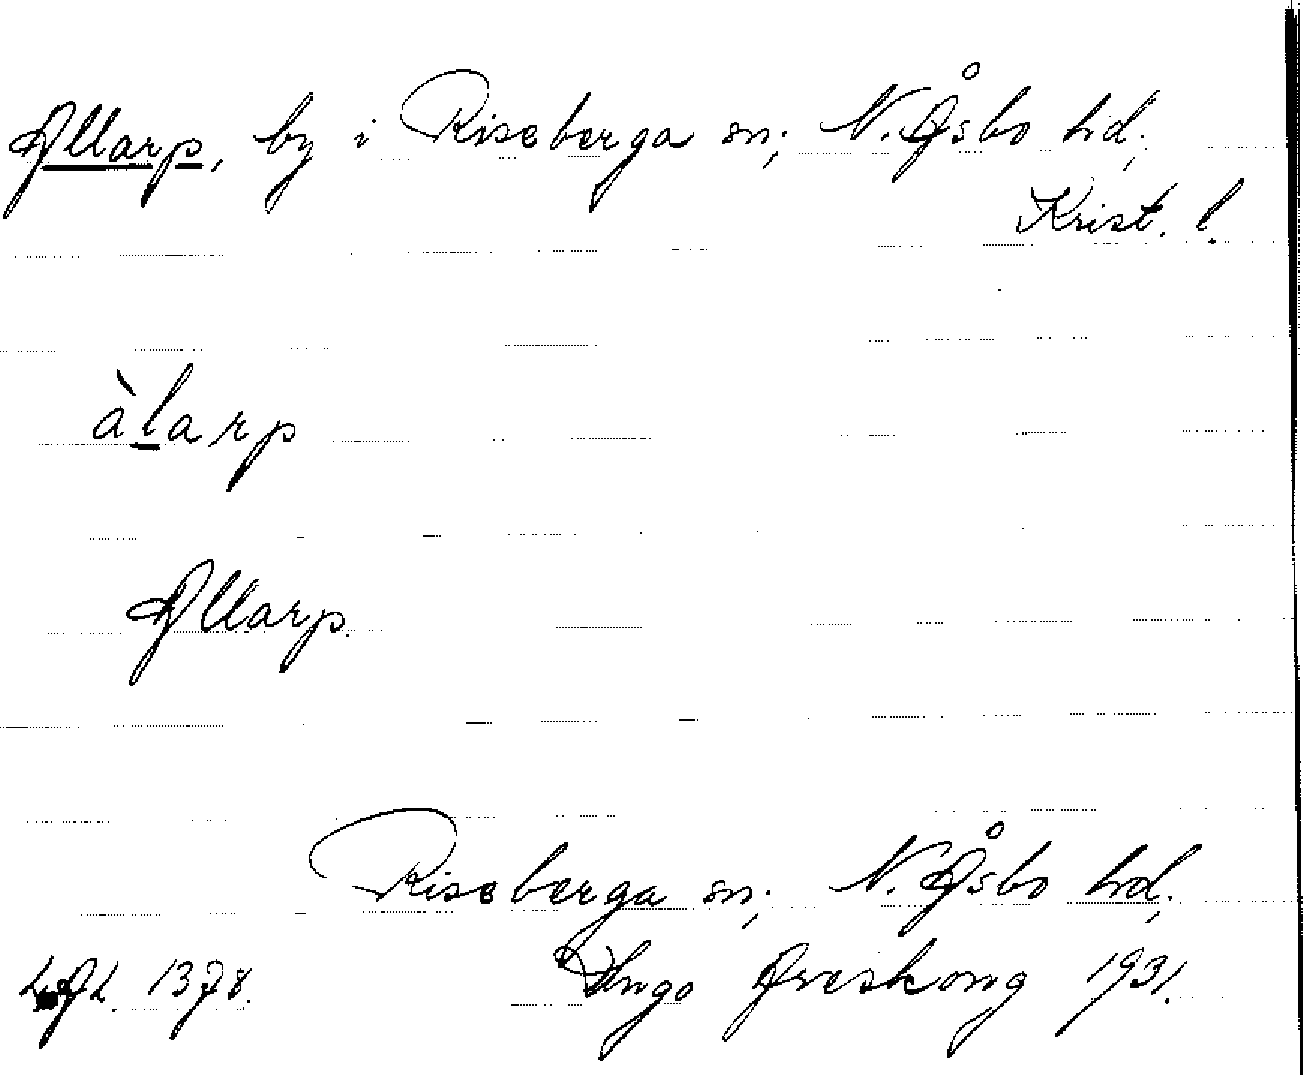 Allarp, by i Riseberga sn; N. Åsbo hd;
Krist. l.
àlarp
Allarp.
Riseberga sn; N. Åsbo hd;
LAL. 1378. Ingo Areskoug 1931.